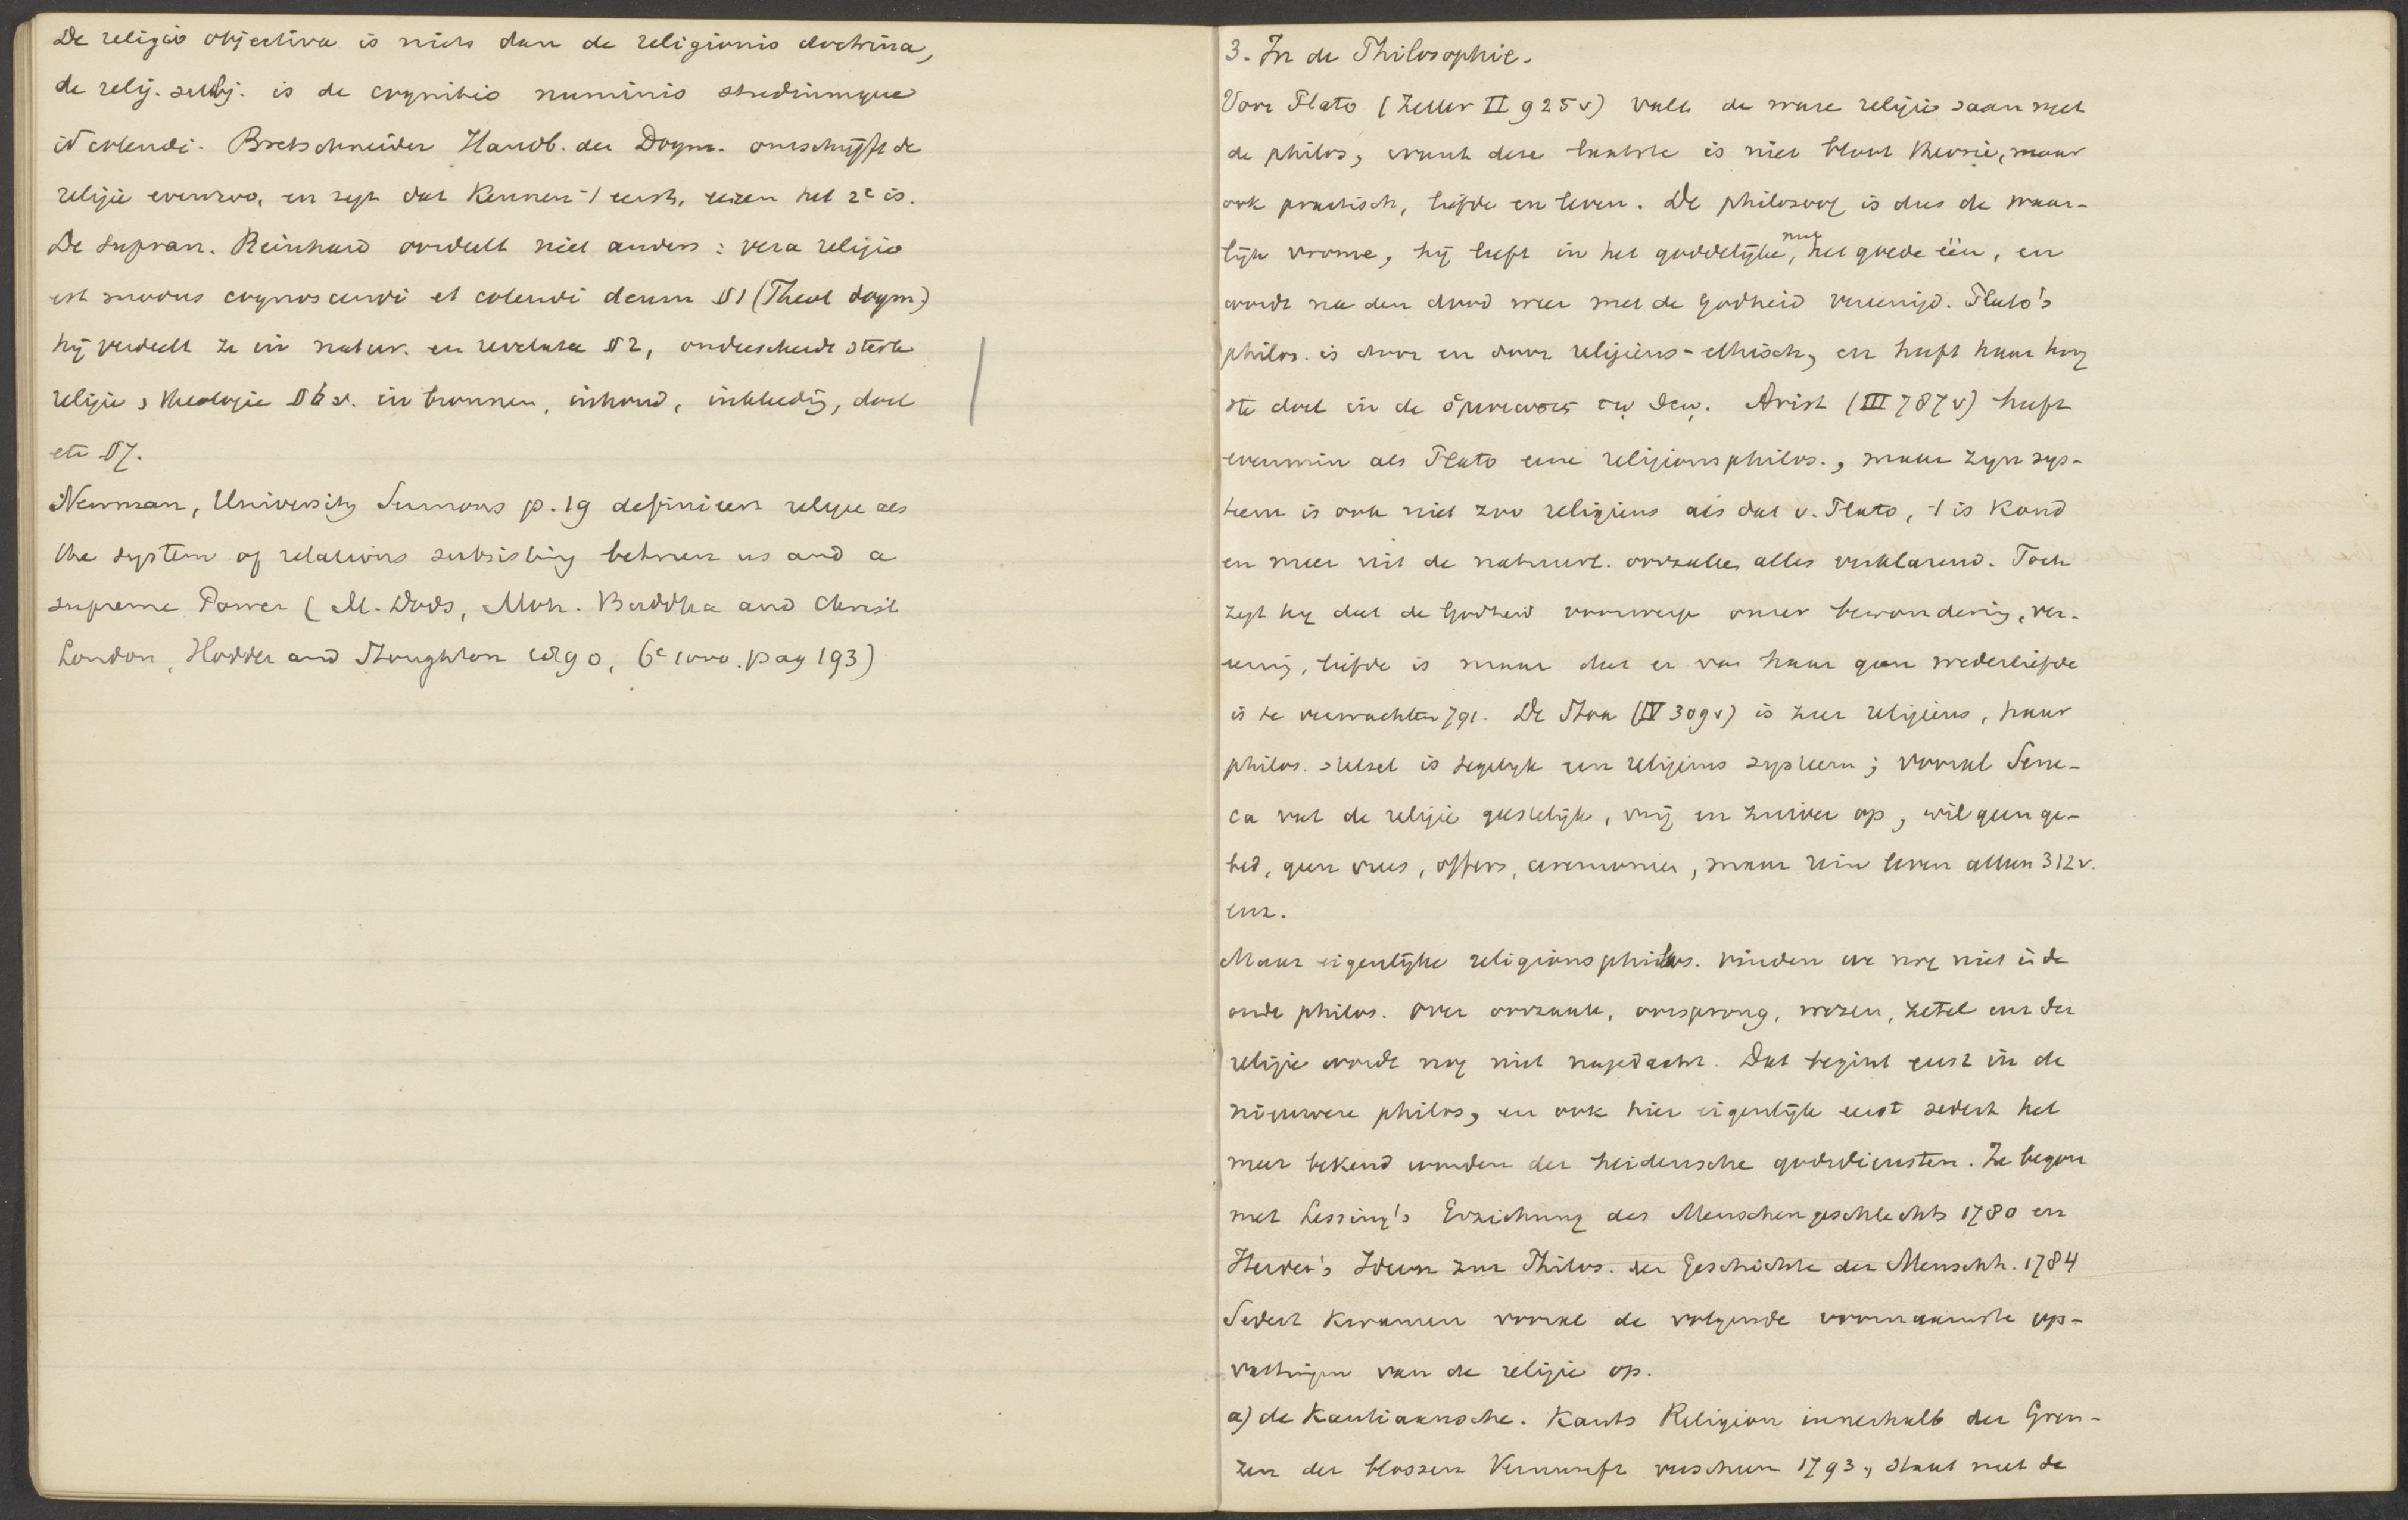 De religio objectiva is niets dan de religionis doctrina,
de relig. subj. is de cognitio numinis studiumque
id colendi. Bretschneider Handb. der Dogm. omschrijft de
religie evenzoo, en zegt dat Kennen 't eerst, eeren het 2e is.
De supran. Reinhard oordeelt niet anders: vera religio
est modus cognoscendi et colendi deum §1 (Theol dogm)
hij verdeelt ze in natur. en revelata §2, onderscheidt sterk
religie & theologie §6 v. in bronnen, inhoud, inkleedg, doel
etc §7.
Newman, University Sermons p. 19 definieert religie als
the system of relations subsisting between us and a
supreme Power (M. Dods, Moh. Buddha and Christ
London, Hodder and Stoughton 1890, 6e 1000. pag 193)
3. In de Philosophie.
Voor Plato (Zeller II 925 v) valt de ware religie saam met
de philos, want deze laatste is niet bloot theorie, maar
ook practisch, liefde en leven. De philosoof is dus de waar-
lijk vrome, hij leeft in het goddelijke, met het goede één, en
wordt na den dood weer met de Godheid vereenigd. Plato's
philos. is door en door religieus-ethisch, en heeft haar hoog
ste doel in de ὁμοιωσις τῳ θεῳ. Arist (III 787 v) heeft
evenmin als Plato eene religionsphilos., maar zijn sys-
teem is ook niet zoo religieus als dat v. Plato, 't is koud
en meer uit de natuurl. oorzaken alles verklarend. Toch
zegt hij dat de Godheid voorwerp onzer bewondering, ver-
eering, liefde is maar dat er van haar geen wederliefde
is te verwachten 791. De Stoa (IV 309 v) is zeer religieus, haar
philos. stelsel is tegelijk een religieus systeem; vooral Sene-
ca vat de religie geestelijk, vrij en zuiver op, wil geen ge-
bed, geen vrees, offers, ceremonien, maar rein leven alleen 312 v.
enz.
Maar eigenlijke religionsphilos. vinden we nog niet in de
oude philos. Over oorzaak, oorsprong, wezen, zetel enz der
religie wordt nog niet nagedacht. Dat begint eerst in de
nieuwere philos, en ook hier eigenlijk eerst sedert het
meer bekend worden der heidensche godsdiensten. Ze begon
met Lessing's Erziehung des Menschengeschlechts 1780 en
Herder's Ideen zur Philos. der Geschichte der Menschh. 1784
Sedert kwamen vooral de volgende voornaamste op-
vattingen van de religie op.
a) de Kantiaansche. Kants Religion innerhalb der Gren-
zen der blossen Vernunft verscheen 1793, staat met de